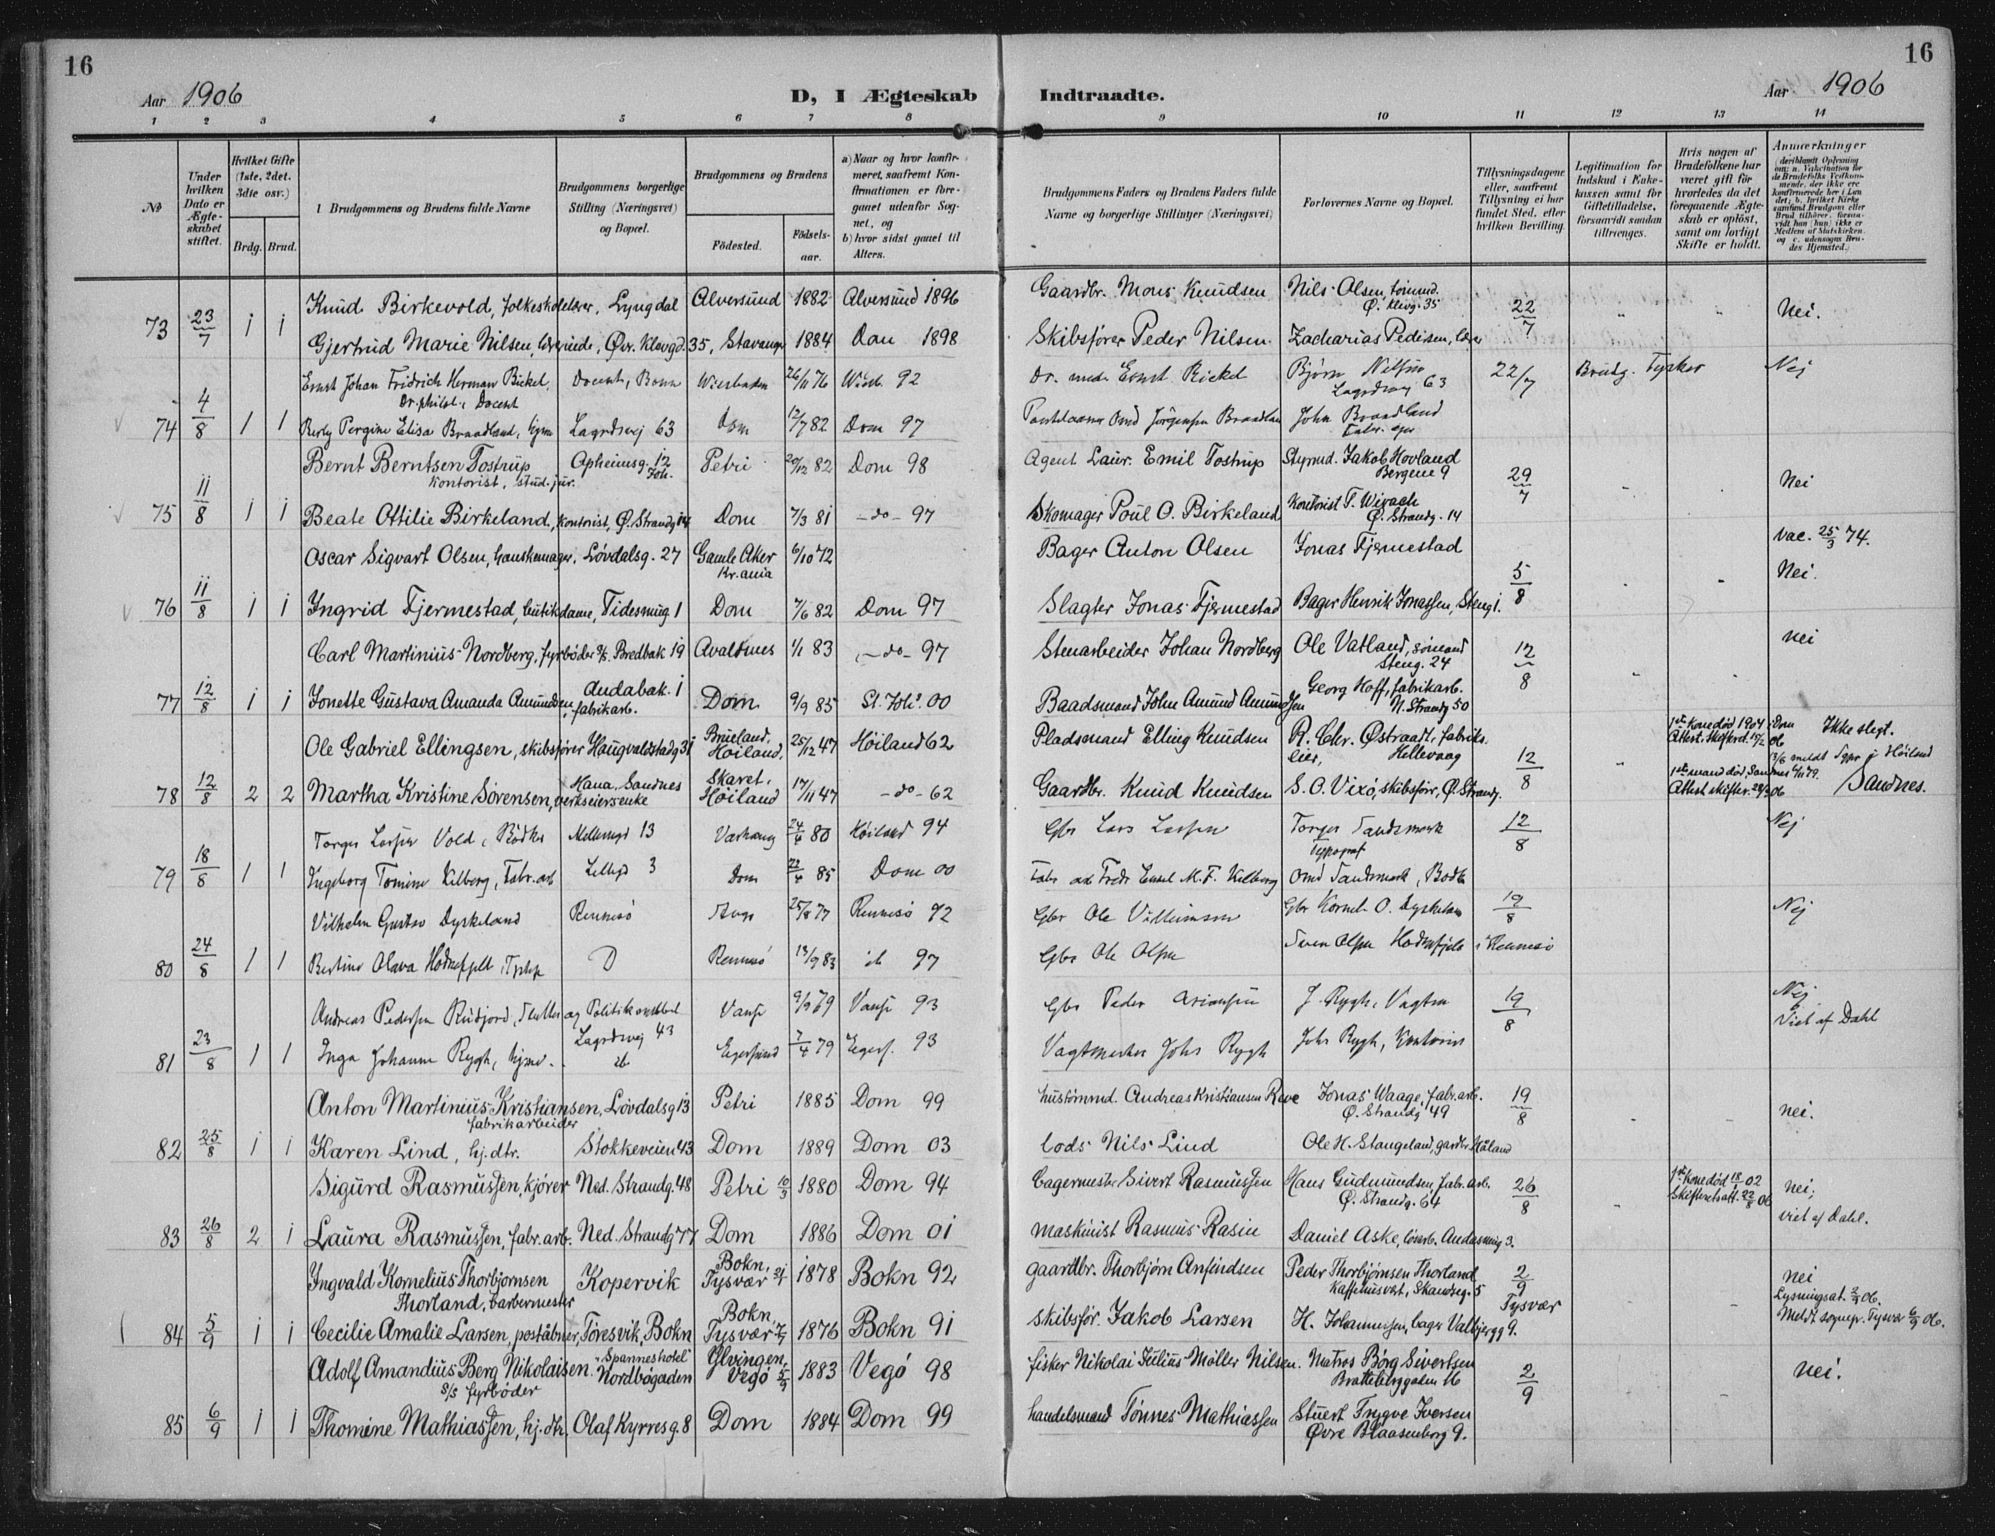 16
16
Aar 1906
D, I Ægteskab Indtraadte.
Aar 1906
1 2 3 4 5 6 7 8 9 10 11 12 13 14
No
Under hvilken Dato er Ægteskabet stiftet.
Hvilket Gifte (1ste, 2det, 3die osv.)
Brdg. Brud.
Brudgommens og Brudens fulde Navne
Brudgommens borgerlige Stilling (Næringsvei) og Bopæl.
Brudgommens og Brudens
Födested. Födselsaar.
a) Naar og hvor konfirmeret, saafremt Konfirmationen er foregaaet udenfor Sognet, og
b) hvor sidst gaaet til Alters.
Brudgommens Faders og Brudens Faders fulde Navne og borgerlige Stillinger (Næringsvei)
Forlovernes Navne og Bopæl.
Tillysningsdagene eller, saafremt Tillysning ei har fundet Sted, efter hvilken Bevilling.
Legitimation for Indskud i Enkekassen samt for Giftetilladelse, forsaavidt saadan tiltrænges.
Hvis nogen af Brudefolkene har været gift för hvorledes da det foregaaende Ægteskab er oplöst, samt om lovligt Skifte er holdt.
Anmærkninger
Knud Birkevold, folkeskolelærer, Lyngdal Alversund 1882 Alversund 1896 Gaardbr. Mons Knudsen Nils Olsen, tømmd. Ø. Klevg. 35
73 23/7 1 1 22/7 " " Nei.
Gjertrud Marie Nilsen, lærerinde, Øvr. Klevgd. 35, Stavanger 1884 Dom 1898 Skibsfører Peder Nilsen. Zacharias Pedersen, lærer
Ernst Johan Fridrich Herman Bickel, Docent, Bonn Wiesbaden 26/11 76 Wiesb. 92 Dr. med. Ernst Bickel Bjørn Nilsen 22/7 Brudg. Tysker Nej
Dr. philos., Docent Lagrdsvej 63
74 4/8 1 1 Elisa Braadland, hjme Lagrdsvej 63 Dom 12/7 82 Dom 97 Omd Jörgensen Braadland John Braadland
Bernt Berntsen Tostrup Opheimsg. 12 Joh. Petri 20/12 82 Dom 98 Agent Laur. Emil Tostrup Styrmd. Jakob Hovland
kontorist, stud. jur. Bergene 9 29/7 " Nei
75 11/8 1 1 Beate Ottilie Birkeland, kontorist, Ø. Strandg 14 Dom 7/3 81 -do- 97 Skomager Poul O. Birkeland Kontorist T. Wivach Ø. Strandg. 14
Oscar Sigvart Olsen, hanskemager, Løvdalsg. 27 Gamle Aker Kr.ania 6/10 72 Bager Anton Olsen Jonas Fjermestad vac. 25/3 74.
5/8 " " Nei.
76 11/8 1 1 Yngrid Fjermestad, butikdame, Tidesmug 1 Dom 7/6 82 Dom 97 Slagter Jonas Fjermestad Bager Henrik Jonassen, Steng 1.
Carl Martinius Nordberg, fyrbøder D/S. Bredbak 19 Avaldsnes 1/1 83 -do- 97 Stenarbeider Johan Nordberg Ole Vatland, sømand Steng. 24 12/8 " " nei
77 12/8 1 1 Jonette Gustava Amanda Amundsen, fabrikarb. Andabak. 1 Dom 9/9 85 St. Johs. 00 Baadsmand John Amund Amundsen Georg Hoff, fabrikarb. N. Strandg 50
Ole Gabriel Ellingsen, skibsfører Haugvaldstadg 31 Brueland, Høiland. 25/12 47 Høiland 62 Pladsmand Elling Knudsen R. Chr. Østraadt, fabrikeier, Hillevaag 12/8 1ste Kone død 1904 Dom Attest. Skifteret 15/2 06 Ikke slegt.
3/6 meldt Sgpr. i Høiland
78 12/8 2 2 Martha Kristine Sørensen, verkseiersenke Hana, Sandnes Skaret, Høiland 17/11 47 -do- 62 Gaardbr. Knud Knudsen S. O. Vixø, skibsfør., Ø. Strandg. 1ste mand død Sandnes 6/11 79. Attest skifter. 28/3 06 Sandnes.
Torger Larsen Vold, Bödker Mellemgd 13 Varhaug 24/4 80 Høiland 94 Gbr Lars Larsen Torger Sandsmark Typograf 12/8 Nej
79 18/8 1 1 Ingeborg Tomine Kilberg, Fabr.arb Lillegd 3 Dom 22/4 85 Dom 00 M. F. Kilberg Omd Sandsmark, Bödk.
Vilhelm Gustav Dyskeland Rennesö 25/8 77 Rennesö 92 Gbr Ole Villumsen Gbr Kornel. O. Dyskeland 19/8 Nej
80 24/8 1 1 Bertine Olava Hodnefjell, D Rennesö 13/9 83 ib 97 Gbr Ole Olsen Sven Olsen Hodnefjeld i Rennesö
Andreas Pedersen Rudjord, Slutter og Politikonstbel Vanse 9/9 79 Vanse 93 Gbr Peder Arionsen J. Rygh, Vagtm 19/8 Nej
Viet af Dahl
81 23/8 1 1 Inga Johanne Rygh, hjme. Lagrdsvej 43 ib Egersund 7/4 79 Egers. 93 Vagtmester Johs Rygh Johs Rygh, Kontorist
Anton Martinius Kristiansen, Løvdalsg 13 Petri 1885 Dom 99 hustømmd. Andreas Kristiansen Reve Jonas Waage, fab.arb. Ø. Strandg 49 19/8 " " nei.
fabrikarbeider
82 25/8 1 1 Karen Lind, hj.dtr. Stokkeveien 43 Dom 1889 Dom 03 lods Nils Lind Ole H. Stangeland, gardbr. Håland
Sigurd Rasmussen, kjører Ned. Strandg. 48 Petri 10/3 1880 Dom 94 bagermester Sivert Rasmussen Hans Gudmundsen, fabr.arb. Ø. Strandg. 64 26/8 1ste Kone død 18/1 02 Skifteretsatt. 22/8 06 nei;
viet af Dahl.
83 26/8 2 1 Laura Rasmussen, fabr.arb. Ned. Strandg 77 Dom 1886 Dom 01 maskinist Rasmus Rasin Daniel Aske, løsarb. Andasmug 3.
Ingvald Kornelius Thorbjørnsen Kopervik Bokn, Tysvær 21/1 1878 Bokn 92 gaardbr. Thorbjørn Anfindsen Peder Thorbjørnsen Thorland 2/9 Tysvær nei
Thorland, barbermester kaffehusvert, Skandseg. 5 Lysningsat. 2/9 06.
84 5/9 1 1 Cecilie Amalie Larsen, poståbner, Føresvik, Bokn Bokn, Tysvær 1876 Bokn 91 skibsfør. Jakob Larsen H. Johannessen, bager Valbjergg 9. Meldt sognepr. Tysvær 6/9 06.
Adolf Amandius Berg Nikolaisen "Spanneshotel" Nordbøgaden Ylvingen, Vegø 5/9 1883 Vegø 98 fisker Nikolai Julius Møller Nilsen. Matros Børg Sivertsen 2/9 nei.
S/S fyrbøder Bratteberggaden 16
85 6/9 1 1 Thomine Mathiassen, hj.dtr. Olaf Kyrresg. 8 Dom 1884 Dom 99 handelsmand Tönnes Mathiassen Stuert Trygve Iversen Øvre Blaasenborg 9.